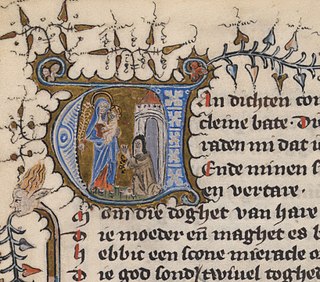 Van dichten com
cleine bate · Die
raden mi dat ic
Ende minen s
en vertare ·
om die doghet van hare
ie moeder eñ maghet es b
ebbic een scone miracle o
ie god sond' twiuel toghed